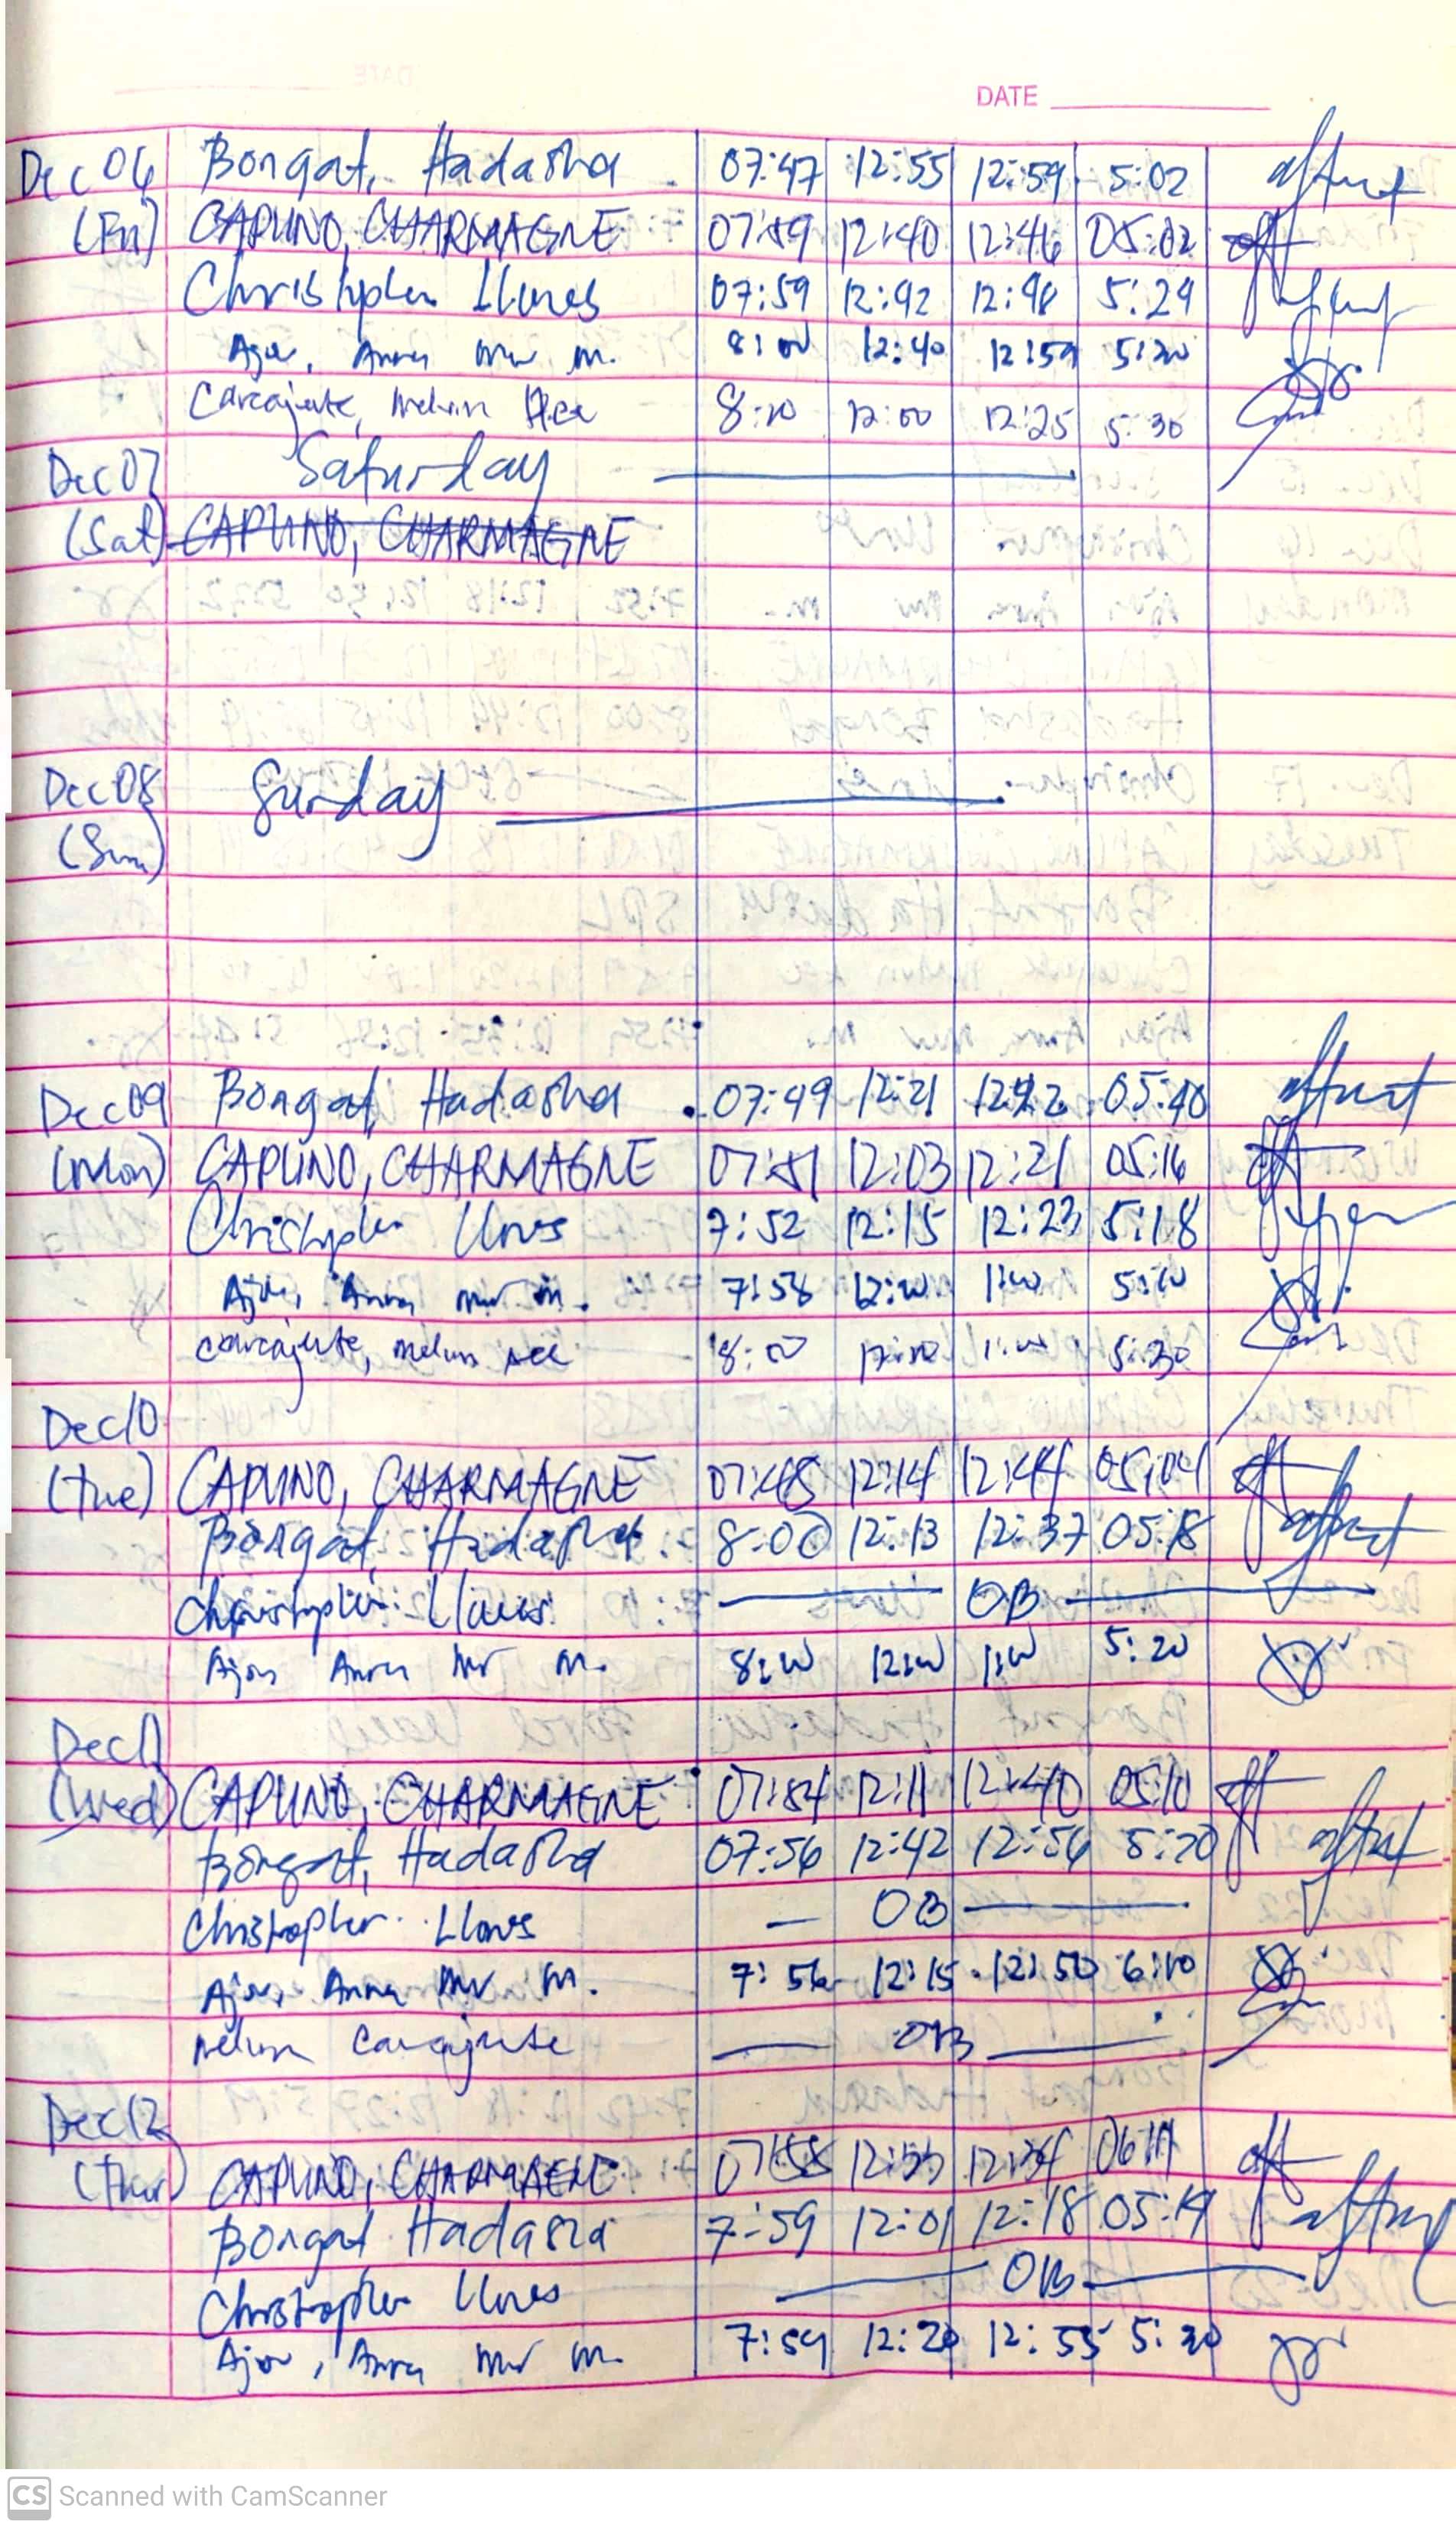 DATE
Dec 06 Bongat, Hadasha 07:47 12:55 12:59 5:02
(Fri) CAPUNO, CHARMAGNE 07:49 12:40 12:46 05:02
Christopher Llanes 07:59 12:42 12:48 5:29
Ajor, Anna Mar M. 8:00 12:40 12:59 5:20
Carcajente, Melvin 8:20 12:00 12:25 5:30
Dec 07 Saturday
(Sat) CAPUNO, CHARMAGNE
Dec 08 Sunday
(Sun)
Dec 09 Bongat, Hadasha 07:49 12:21 05:40
(Mon) CAPUNO, CHARMAGNE 07:51 12:03 12:21 05:16
Christopher Llanes 7:52 12:15 12:23 5:18
Ajor, Anna Mar M. 7:58 12:20 1:00 5:20
Carcajente, Melvin 8:00 12:00 1:00 5:30
Dec 10
(Tue) CAPUNO, CHARMAGNE 07:48 12:14 12:44 05:04
Bongat, Hadasha 8:00 12:13 12:37 05:18
Christopher Llanes OB
Ajor Anna Mar M. 8:00 12:00 1:00 5:20
Dec 11
(Wed) CAPUNO, CHARMAGNE 07:54 12:11 12:40 05:10
Bongat, Hadasha 07:56 12:42 12:56 5:20
Christopher Llanes OB
Ajor, Anna Mar M. 7:56 12:15 12:50 6:10
Melvin Carcajente OB
Dec 12
(Thur) CAPUNO, CHARMAGNE 07:58 12:33 12:34 06:11
Bongat Hadasha 7:59 12:01 12:18 05:19
Christopher Llanes OB
Ajor, Anna Mar M. 7:59 12:20 12:55 5:20
CS Scanned with CamScanner